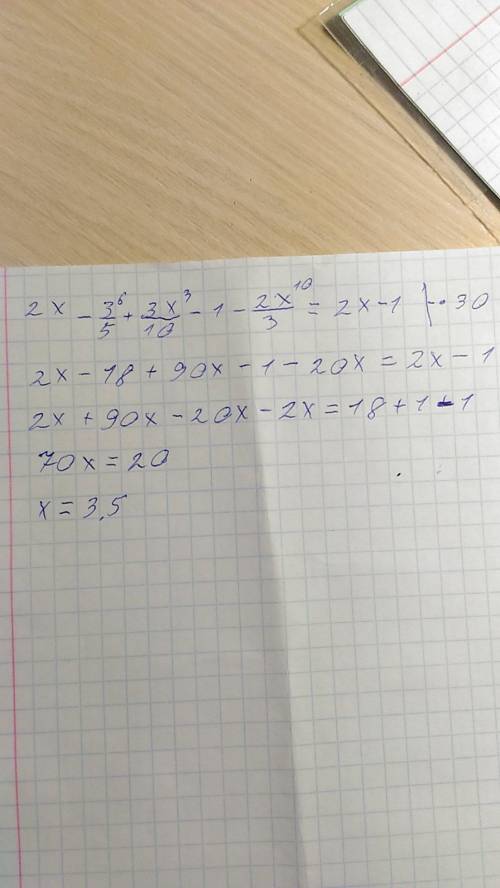 2x - 3⁶/5 + 3x³/10 - 1 - 2x¹⁰/3 = 2x - 1 | · 30
2x - 18 + 90x - 1 - 20x = 2x - 1
2x + 90x - 20x - 2x = 18 + 1 - 1
70x = 20
x = 3,5